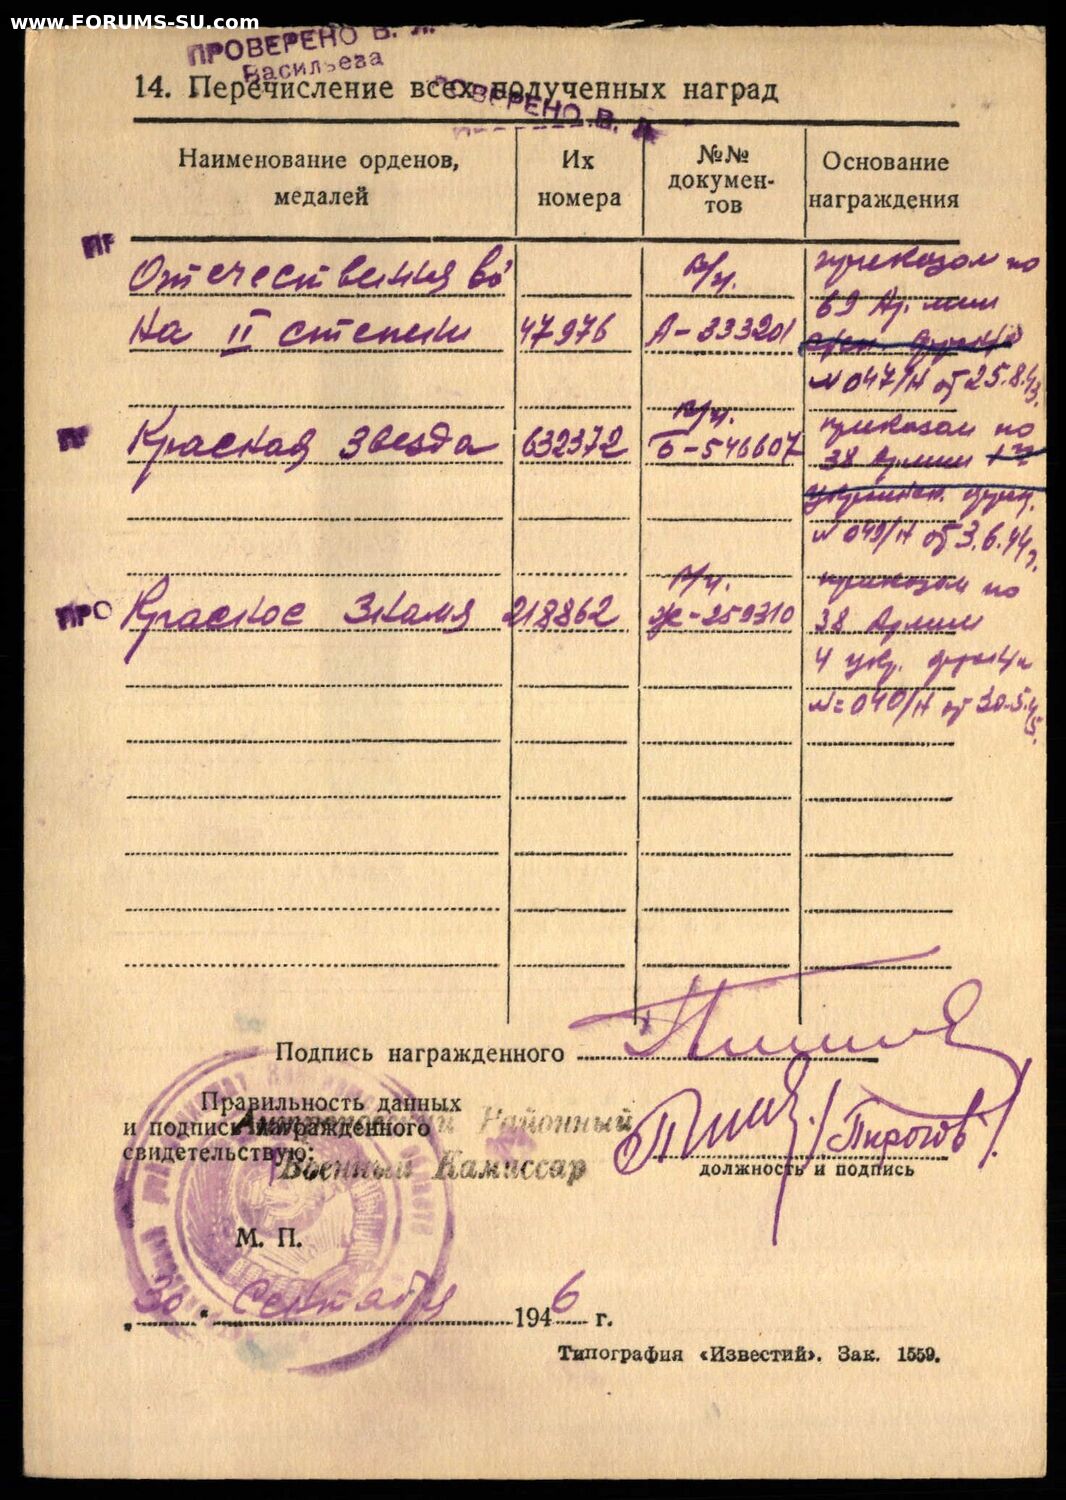 www.FORUMS-SU.com
ПРОВЕРЕНО В. Л.
Васильева
14. Перечисление всех полученных наград
ОВЕРЕНО В. Л.
Наименование орденов, медалей
Их номера
№№ докумен-тов
Основание награждения
ПР
Отечественная вой
на II степени
47976
в/ч.
А-333201
приказом по
69 Армии
фронта
№ 047/Н от 25.8.43.
ПР
Красная Звезда
632372
в/ч.
Б-546607
приказом по
38 Армии 1й
украинск. фрон.
№ 049/Н от 3.6.44г.
ПРО
Красное Знамя
218862
в/ч.
Ж-259310
приказом по
38 Армии
4 укр. фронта
№=040/Н от 30.5.45.
Подпись награжденного
Правильность данных
и подпись награжденного
свидетельствую:
Районный
Военный Комиссар
/Пирогов/
должность и подпись
М. П.
„30“ Сентября 1946 г.
Типография «Известий». Зак. 1559.